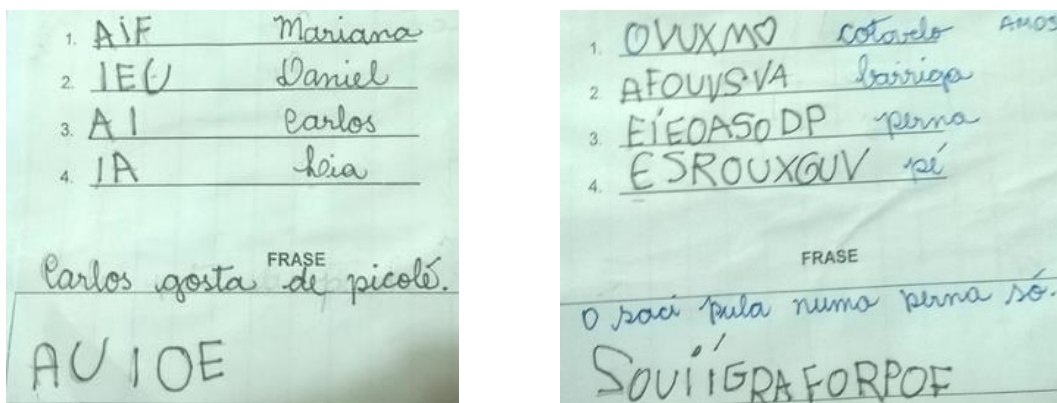 1. AIF Mariana
2. IEU Daniel
3. AI Carlos
4. IA Lia
FRASE
Carlos gosta de picolé.
AUIOE
1. OVUXMO cotovelo AMOS
2. AFOUVSVA barriga
3. EÍEOASODP perna
4. ESROUXGUV pé
FRASE
O saci pula numa perna só.
SOUIIGRAFORPOF